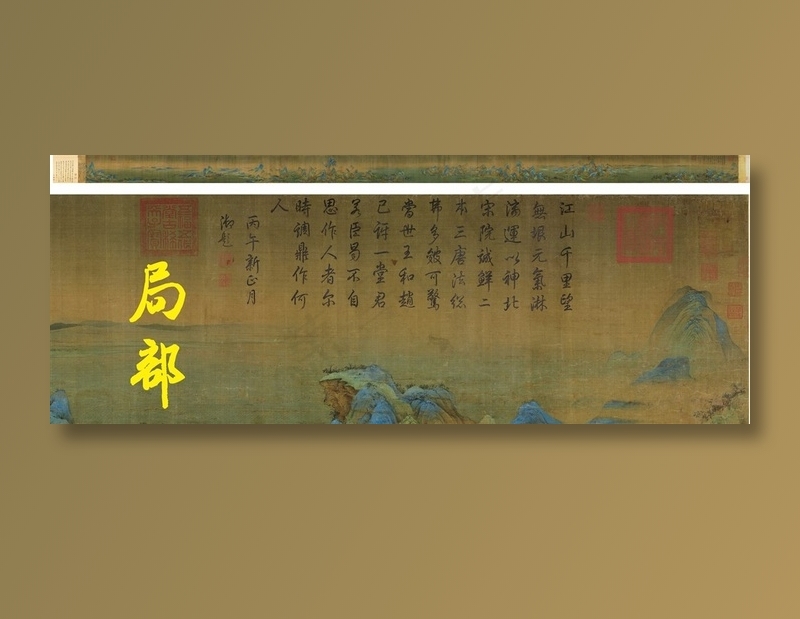 江山千里望
無垠元氣淋
漓運以神北
宋院誠鮮二
本三唐法總
弗多皴可驚
當世王和趙
已訝一堂君
若臣曷不自
思作人者尔
時調鼎作何
人
丙午新正月
御題
局部